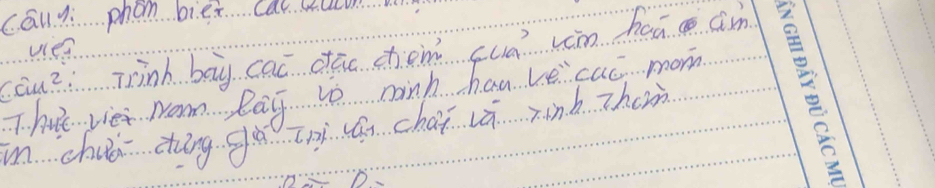 câu 1: phân biệt các
việt
câu 2: Trình bày các đặc điểm của văn hoá ẩm
Thực việt nam lấy vò minh hau về các món
ăn chứa đựng giá Trị vật chất và Tinh Thần
ẦN GHI ĐẦY ĐỦ CÁC MỤ